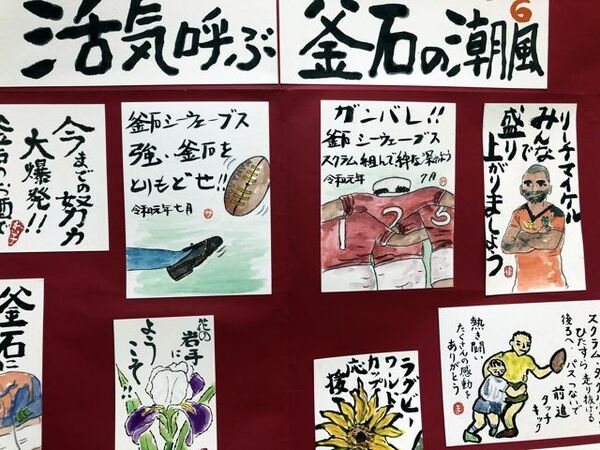 活気呼ぶ
釜石の潮風
6
今までの努力
大爆発!!
釜石シーウェーブス
強い釜石を
とりもどせ!!
令和元年七月
ガンバレ!!
釜石シーウェーブス
スクラム組んで絆な深めよう
令和元年 7月
リーチマイケル
みんなで
盛り
上がりましょう
釜石に
花の
岩手に
ようこそ!!
1
2
3
ラグビー
ワールド
カップ
応援
スクラム
ひたすら走り抜ける
後ろへパスつないで
前進
タッチ
キック
熱き闘い
たくさんの感動を
ありがとう